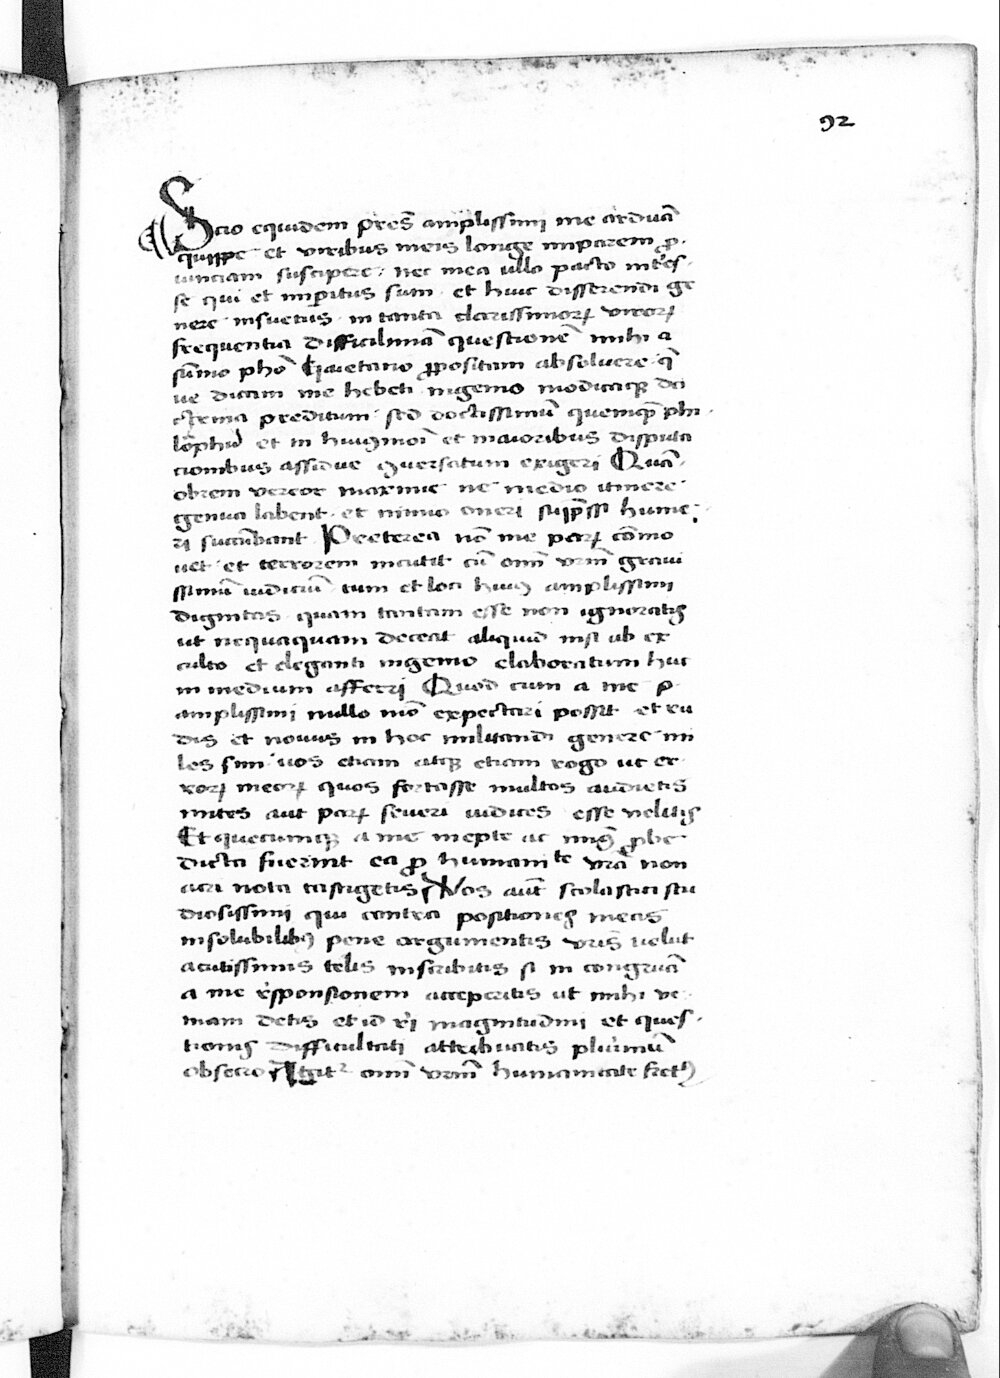 92
Scio equidem pres̄ amplissimi me arduā
quippe et viribus meis longe imparem ꝓ
uinciam suscipere · nec mea ullo pacto intēs
se qui et imꝑitus sum · et huic disserendi ge
nere insuetus · in tanta clarissimoꝝ viroꝝ
frequentia difficilimā questionē mihi a
sūmo phō Gaietano ꝓpositam absoluere · qͥ
ue dicam me hebeti ingenio modicaqꝫ do
ctrina preditum · sed doctissimū quemqꝫ phi
lōphū et in huiꝰmōi et maioribus disputa
tionibus assidue ꝯuersatum exigeri Quā
obrem vereor maxime ne medio itinere
genua labent · et nimio oneri supp̄ssi hume
ri sucūbant Preterea nō me paꝝ cōmo
uet et terrorem incutit cū oīm vrm̄ graui
ssimū iudiciū tum et loci huiꝰ amplissimi
dignitas quam tantam esse non ignoratis
ut nequaquam deceat aliquid nisi ab ex
culto et eleganti ingenio elaboratum huc
in medium afferri Quod cum a me p̄
amplissimi nullo mō expectari possit et ru
dis et nouus in hoc militandi genere mi
les sim · uos etiam atqꝫ etiam rogo ut er
roꝝ meoꝝ quos fortasse multos audietis
mites aut paꝝ seueri iudices esse uelitis
Et quecumqꝫ a me inepte ac minꝰ ꝓbe
dicta fuerint ea ꝓ humanite vrā non
acri nota castigetis Vos aūt scolastici stu
diosissimi qui contra positiones meas
insolubilibꝰ pene argumentis vrīs uelut
acutissimis telis inscribitis si in congruā
a me rn̄sponsionem acceperitis ut mihi ve
niam detis et id rēi magnitudini et ques
tionis difficultati attribuatis plurimū
obsecro Igit᷑ oīm vrm̄ humanitate fretꝰ